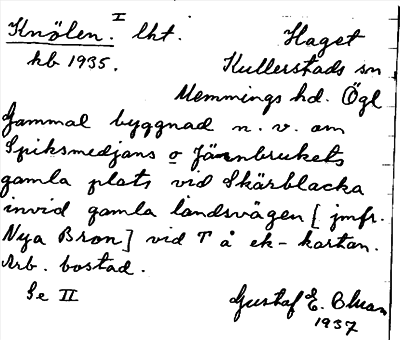 Knölen. I lht. Haget
kb 1935. Kullerstads sn
Memmings hd. Ögl
Gammal byggnad n. v. om
Spiksmedjans o Järnbrukets
gamla plats vid Skärblacka
invid gamla landsvägen [jmfr.
Nya Bron] vid T å ek-kartan.
Arb. bostad.
Se II Gustaf E. Bluan
1937